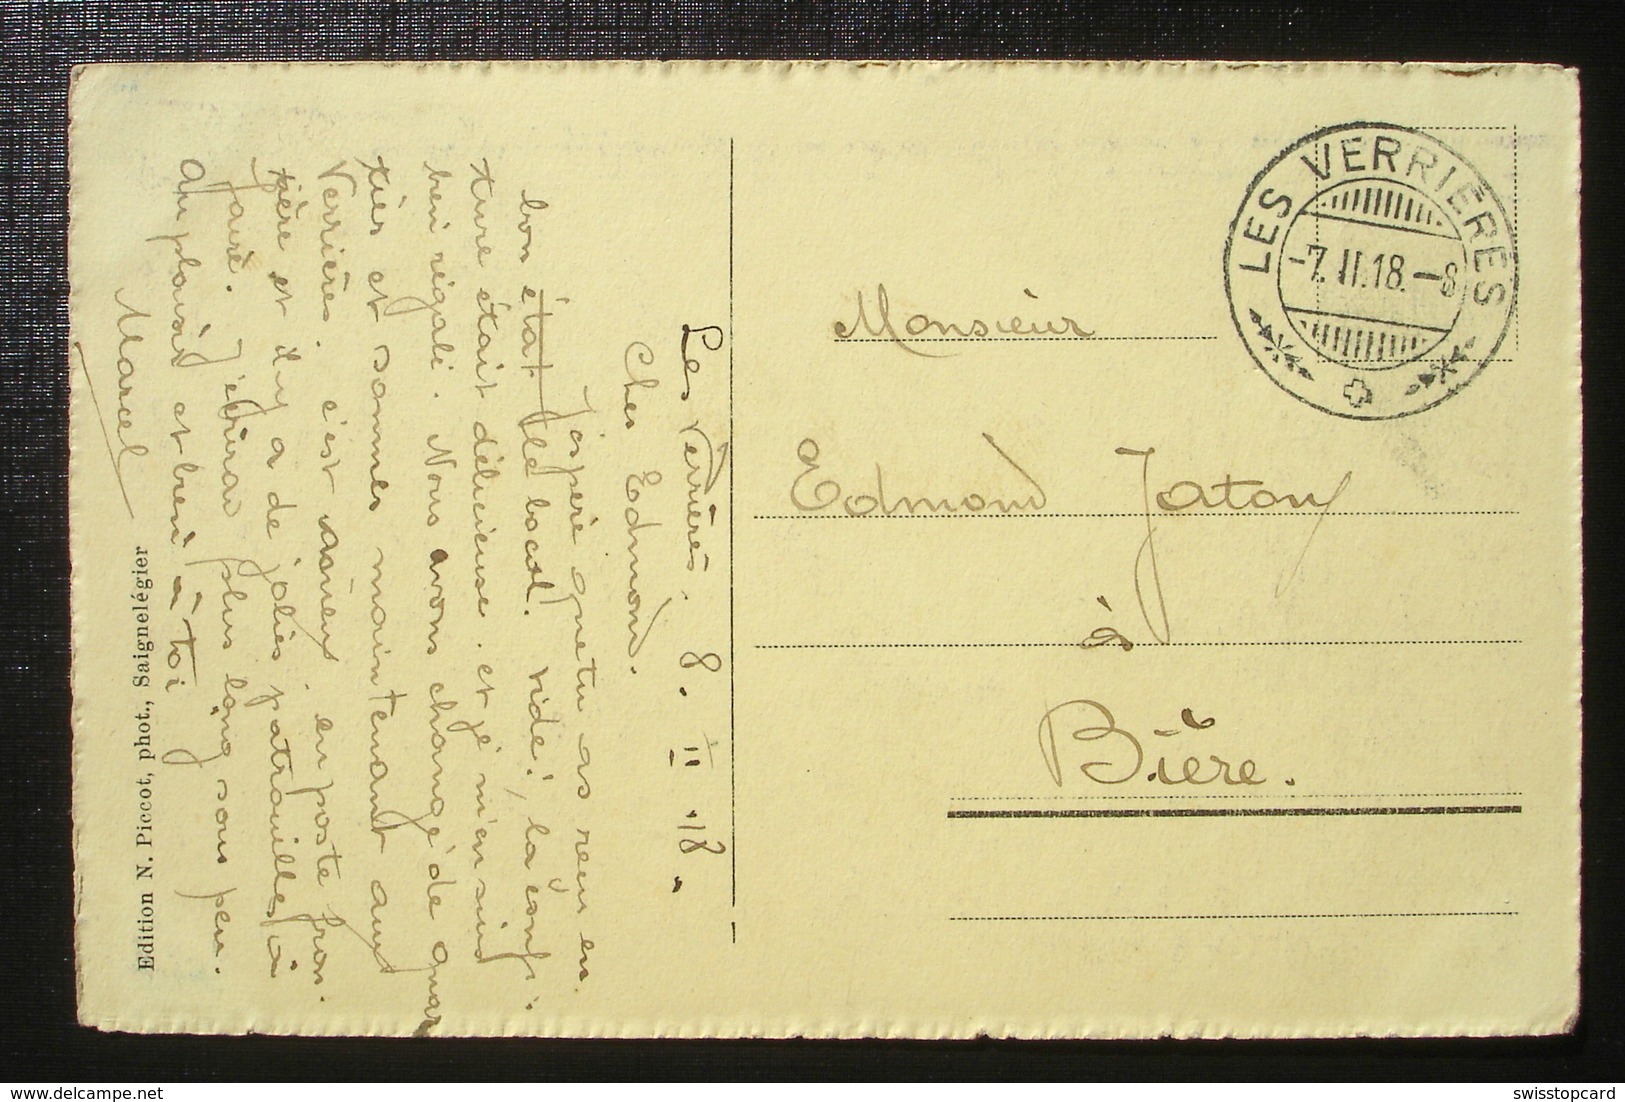 Les Verrières. 8. II. 18.
Cher Edmond.
J'espère que tu as reçu en
bon état le bocal. vidé!, la confi-
ture était délicieuse. et je m'en suis
bien régalé. Nous avons changé de quar
tier et sommes maintenant aux
Verrières. c'est sérieux. en poste fron-
tière et il y a de jolies patrouilles à
faire. J'écrirai plus long sous peu.
Au plaisir et bien à toi
Marcel
Edition N. Piccot, phot., Saignelégier
LES VERRIÈRES
-7. II. 18. -8
Monsieur
Edmond Jaton
à
Bière.
delcampe.net
swisstopcard